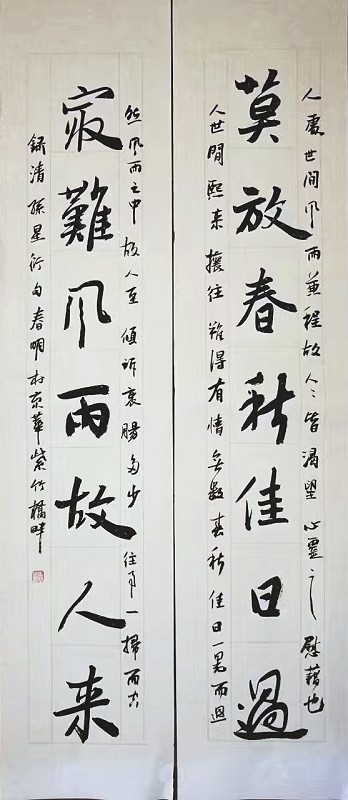 人處世间风雨兼程故人人皆渴望心靈之慰藉也
莫放春秋佳日過
人世間熙来攘往難得有情無數春秋佳日一晃而過
然风雨之中故人互傾訴衷腸多少往事一掃而空
冣難风雨故人来
録清孫星衍句春明於京華紫竹橋畔